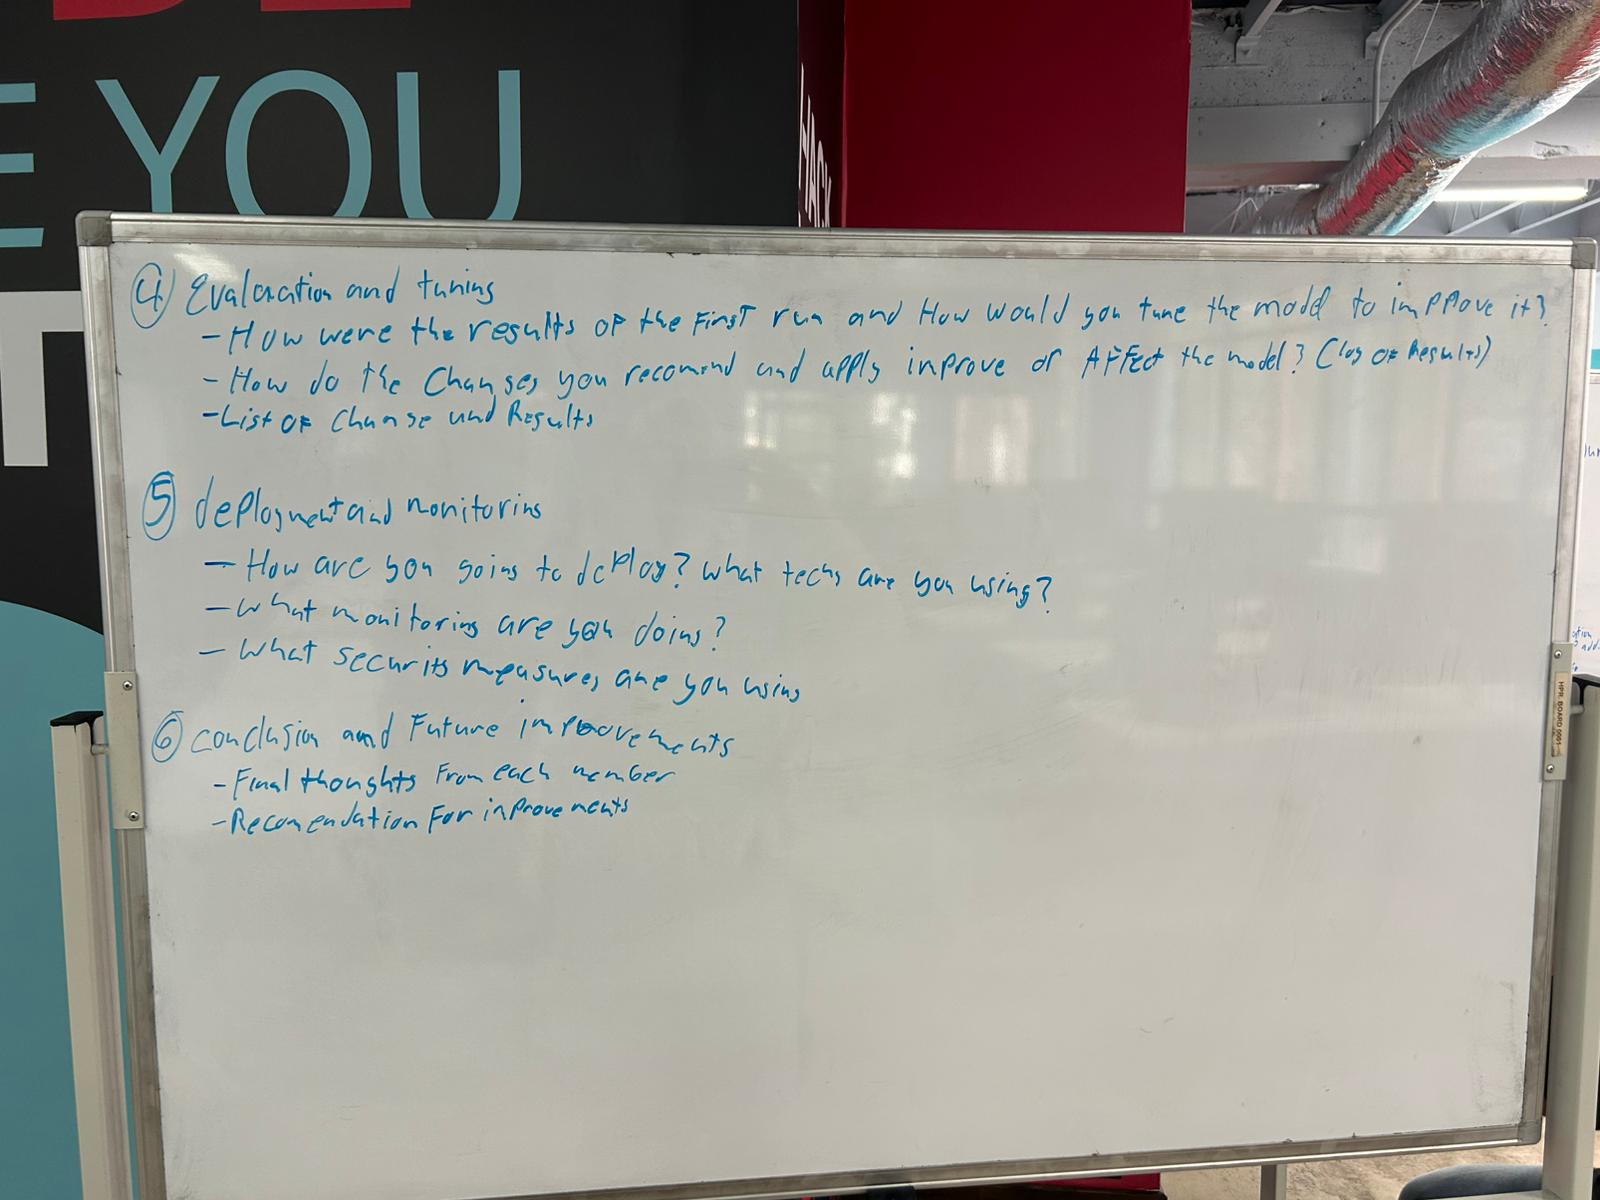 E YOU
HACK
④ Evaluation and tuning
- How were the results of the First run and How would you tune the model to improve it?
- How do the Changes you recomend and apply inprove or Affect the model? (log of Results)
- List of Change and Results
⑤ deployment and monitoring
- How are you going to deploy? what techs are you using?
- what monitoring are you doing?
- what security measures are you using
⑥ conclusion and Future improvements
- Final thoughts From each member
- Recomendation For inprovements
HPR. BOARD 0001